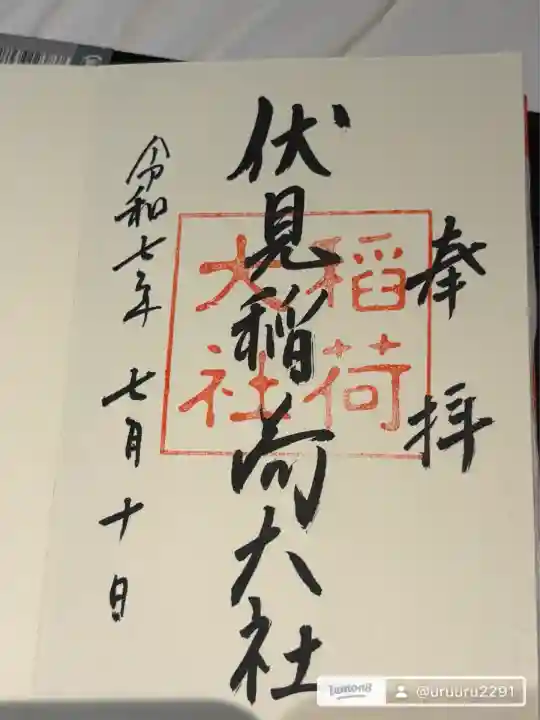 奉拝
伏見稲荷大社
稲荷
大社
令和七年 七月 十日
Lemon8
@uruuru2291